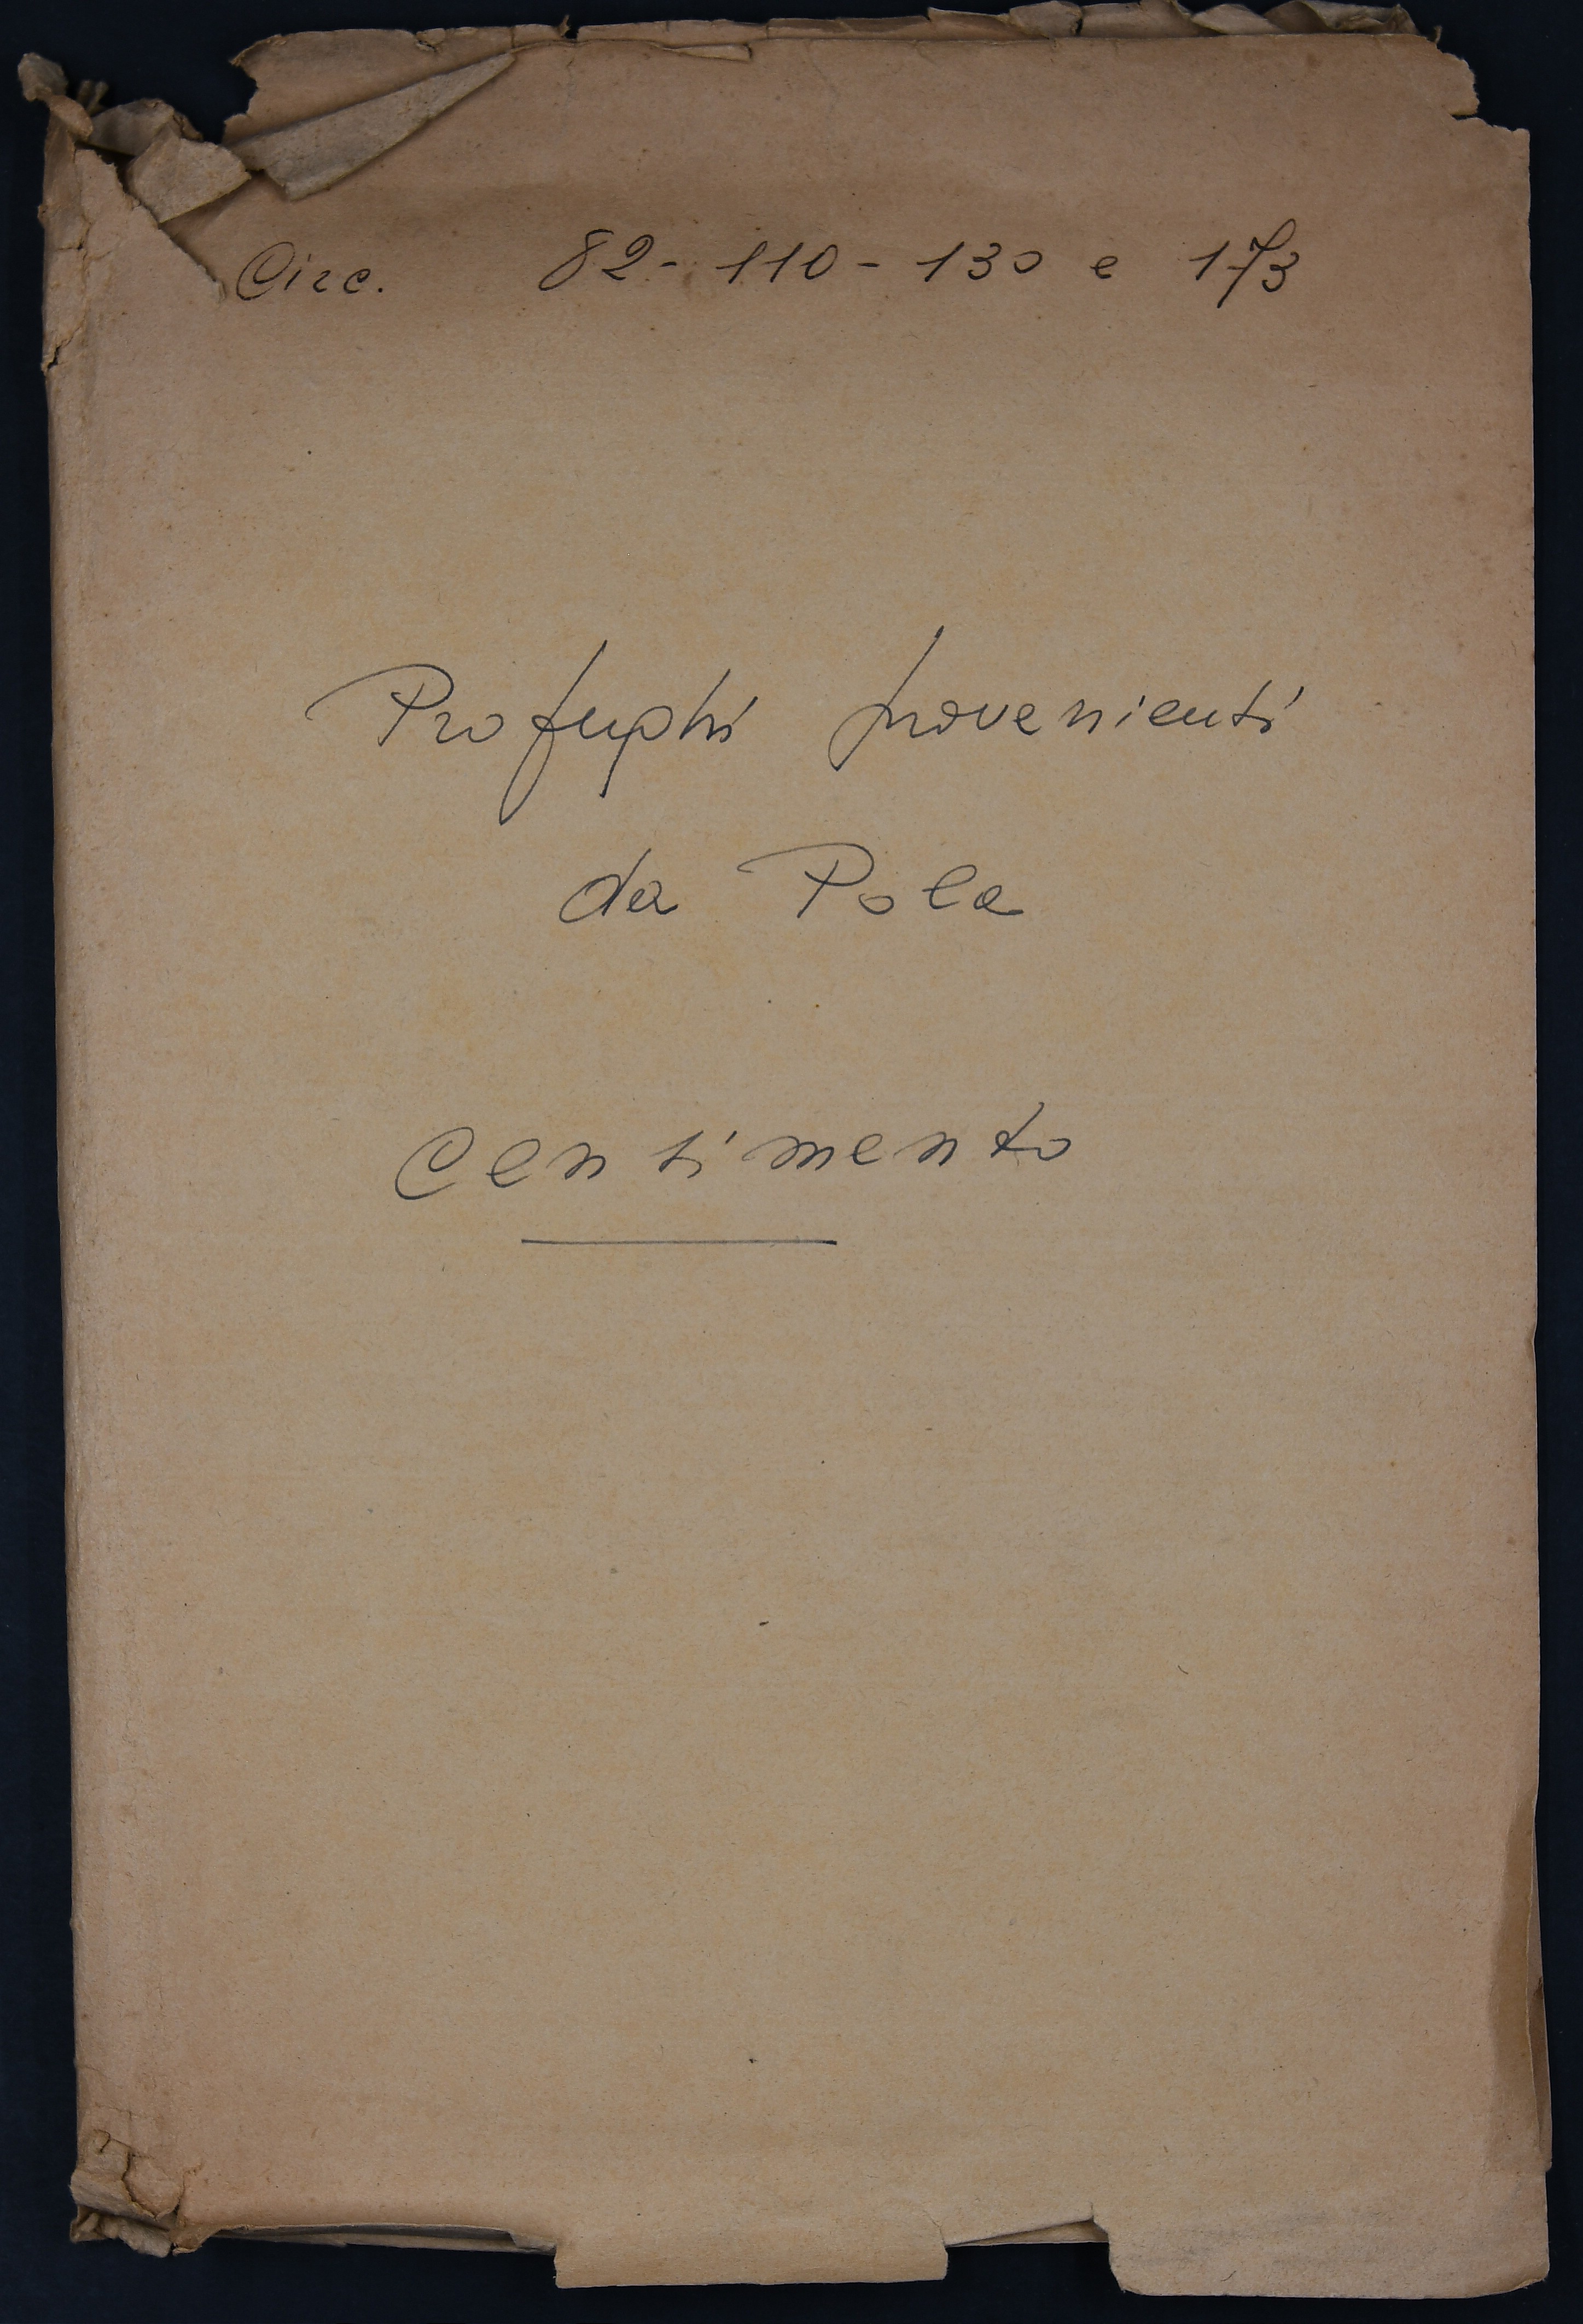 Circ. 82 - 110 - 130 e 173
Profughi provenienti
da Pola
Censimento